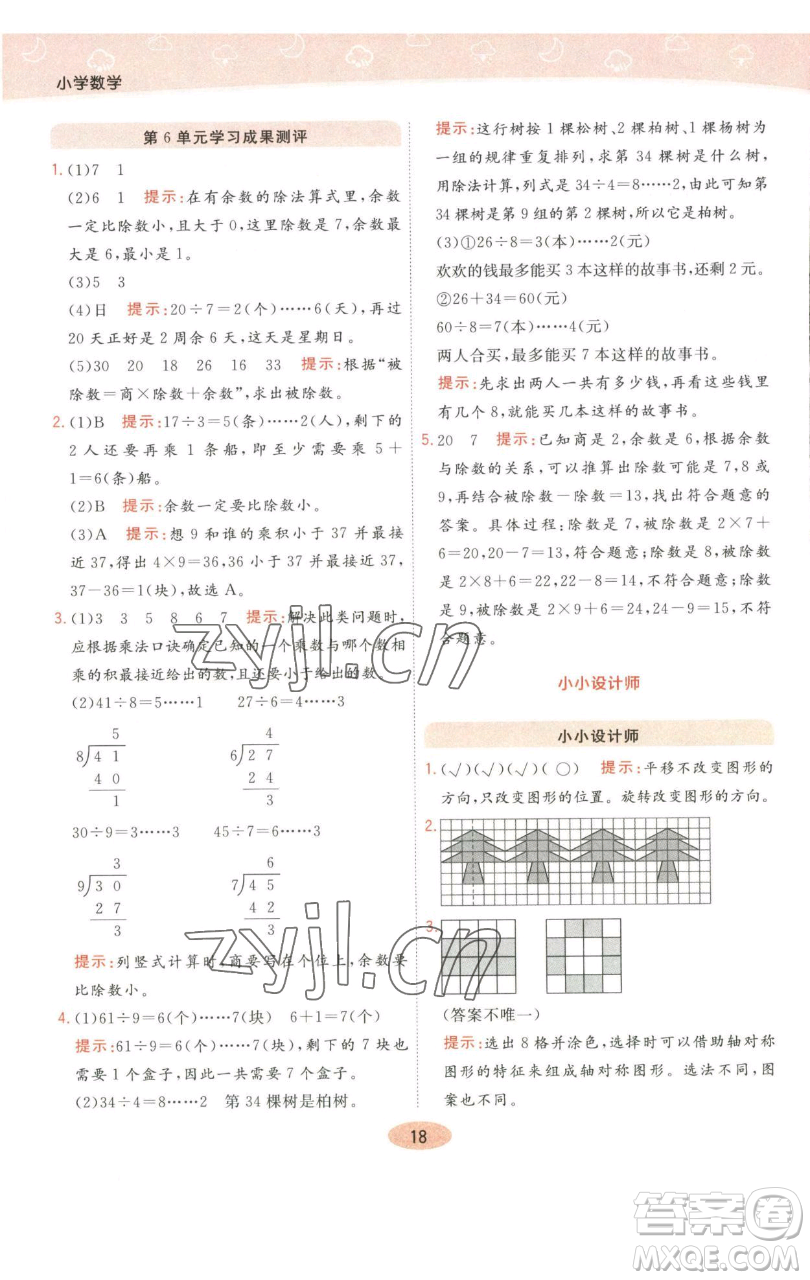 小学数学
第 6 单元学习成果测评
1. (1)7 1
(2)6 1 提示:在有余数的除法算式里,余数
一定比除数小,且大于 0,这里除数是 7,余数最
大是 6,最小是 1。
(3)5 3
(4)日 提示:20÷7=2(个)……6(天),再过
20 天正好是 2 周余 6 天,就是星期日。
(5)30 20 18 26 16 33 提示:根据“被
除数=商×除数+余数”,求出被除数。
2. (1)B 提示:17÷3=5(条)……2(人),剩下的
2 人还要再乘 1 条船,即至少需要乘 5+
1=6(条)船。
(2)B 提示:余数一定要比除数小。
(3)A 提示:想 9 和谁的乘积小于 37 并最接
近 37,得出 4×9=36,36 小于 37 且最接近 37,
37-36=1(块),故选 A。
3. (1)3 3 5 8 6 7 提示:解决此类问题时,
应根据乘法口诀确定已知的一个乘数与哪个数相
乘的积最接近给出的数,且还要小于给出的数。
(2)41÷8=5……1 27÷6=4……3
5 4
8 4 1 6 2 7
4 0 2 4
1 3
30÷9=3……3 45÷7=6……3
3 6
9 3 0 7 4 5
2 7 4 2
3 3
提示:列竖式计算时,商要写在个位上,余数要
比除数小。
4. (1)61÷9=6(个)……7(块) 6+1=7(个)
提示:61÷9=6(个)……7(块),剩下的 7 块也
需要 1 个盒子,因此一共需要 7 个盒子。
(2)34÷4=8……2 第 34 棵树是柏树。
提示:这行树按 1 棵松树、2 棵柏树、1 棵杨树为
一组的规律重复排列,求第 34 棵树是什么树,
用除法计算,列式是 34÷4=8……2,由此可知第
34 棵树是第 9 组的第 2 棵树,所以它是柏树。
(3)①26÷8=3(本)……2(元)
欢欢的钱最多能买 3 本这样的故事书,还剩 2 元。
②26+34=60(元)
60÷8=7(本)……4(元)
两人合买,最多能买 7 本这样的故事书。
提示:先求出两人一共有多少钱,再看这些钱里
有几个 8,就能买几本这样的故事书。
5. 20 7 提示:已知商是 2,余数是 6,根据余数
与除数的关系,可以推算出除数可能是 7,8 或
9,再结合被除数-除数=13,找出符合题意的
答案。具体过程:除数是 7,被除数是 2×7+
6=20,20-7=13,符合题意;除数是 8,被除数
是 2×8+6=22,22-8=14,不符合题意;除数
是 9,被除数是 2×9+6=24,24-9=15,不符
合题意。
小小设计师
小小设计师
1. (√)(√)(√)(○) 提示:平移不改变图形的
方向,只改变图形的位置。旋转改变图形的方向。
2.
3.
(答案不唯一)
提示:选出 8 格并涂色,选择时可以借助轴对称
图形的特征来组成轴对称图形。选法不同,图
案也不同。
18
zyjl.cn
zyjl.cn
答案卷
MXQE.COM